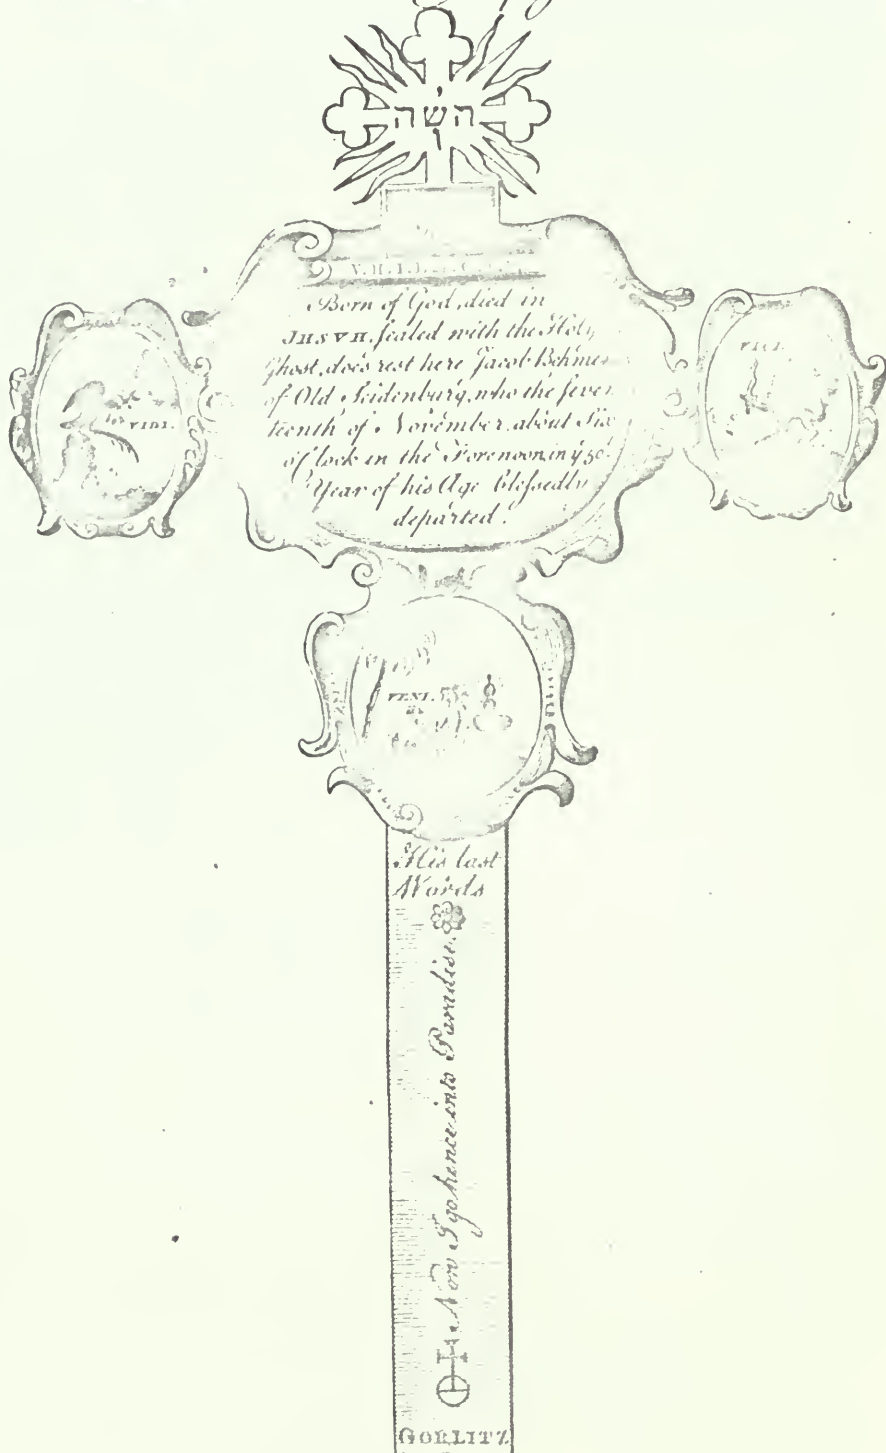 י
השה
ו
Born of God, died in
JHSVH. ſealed with the Holy
Ghost, does rest here Jacob Behmen
of Old Seidenburg, who the ſeven
teenth of November, about Six
o'Clock in the Forenoon, in y 50
Year of his Age bleſsedly
departed.
VIDI.
VICI.
VENI.
His last
Words
Now I go hence into Paradise.
GORLITZ